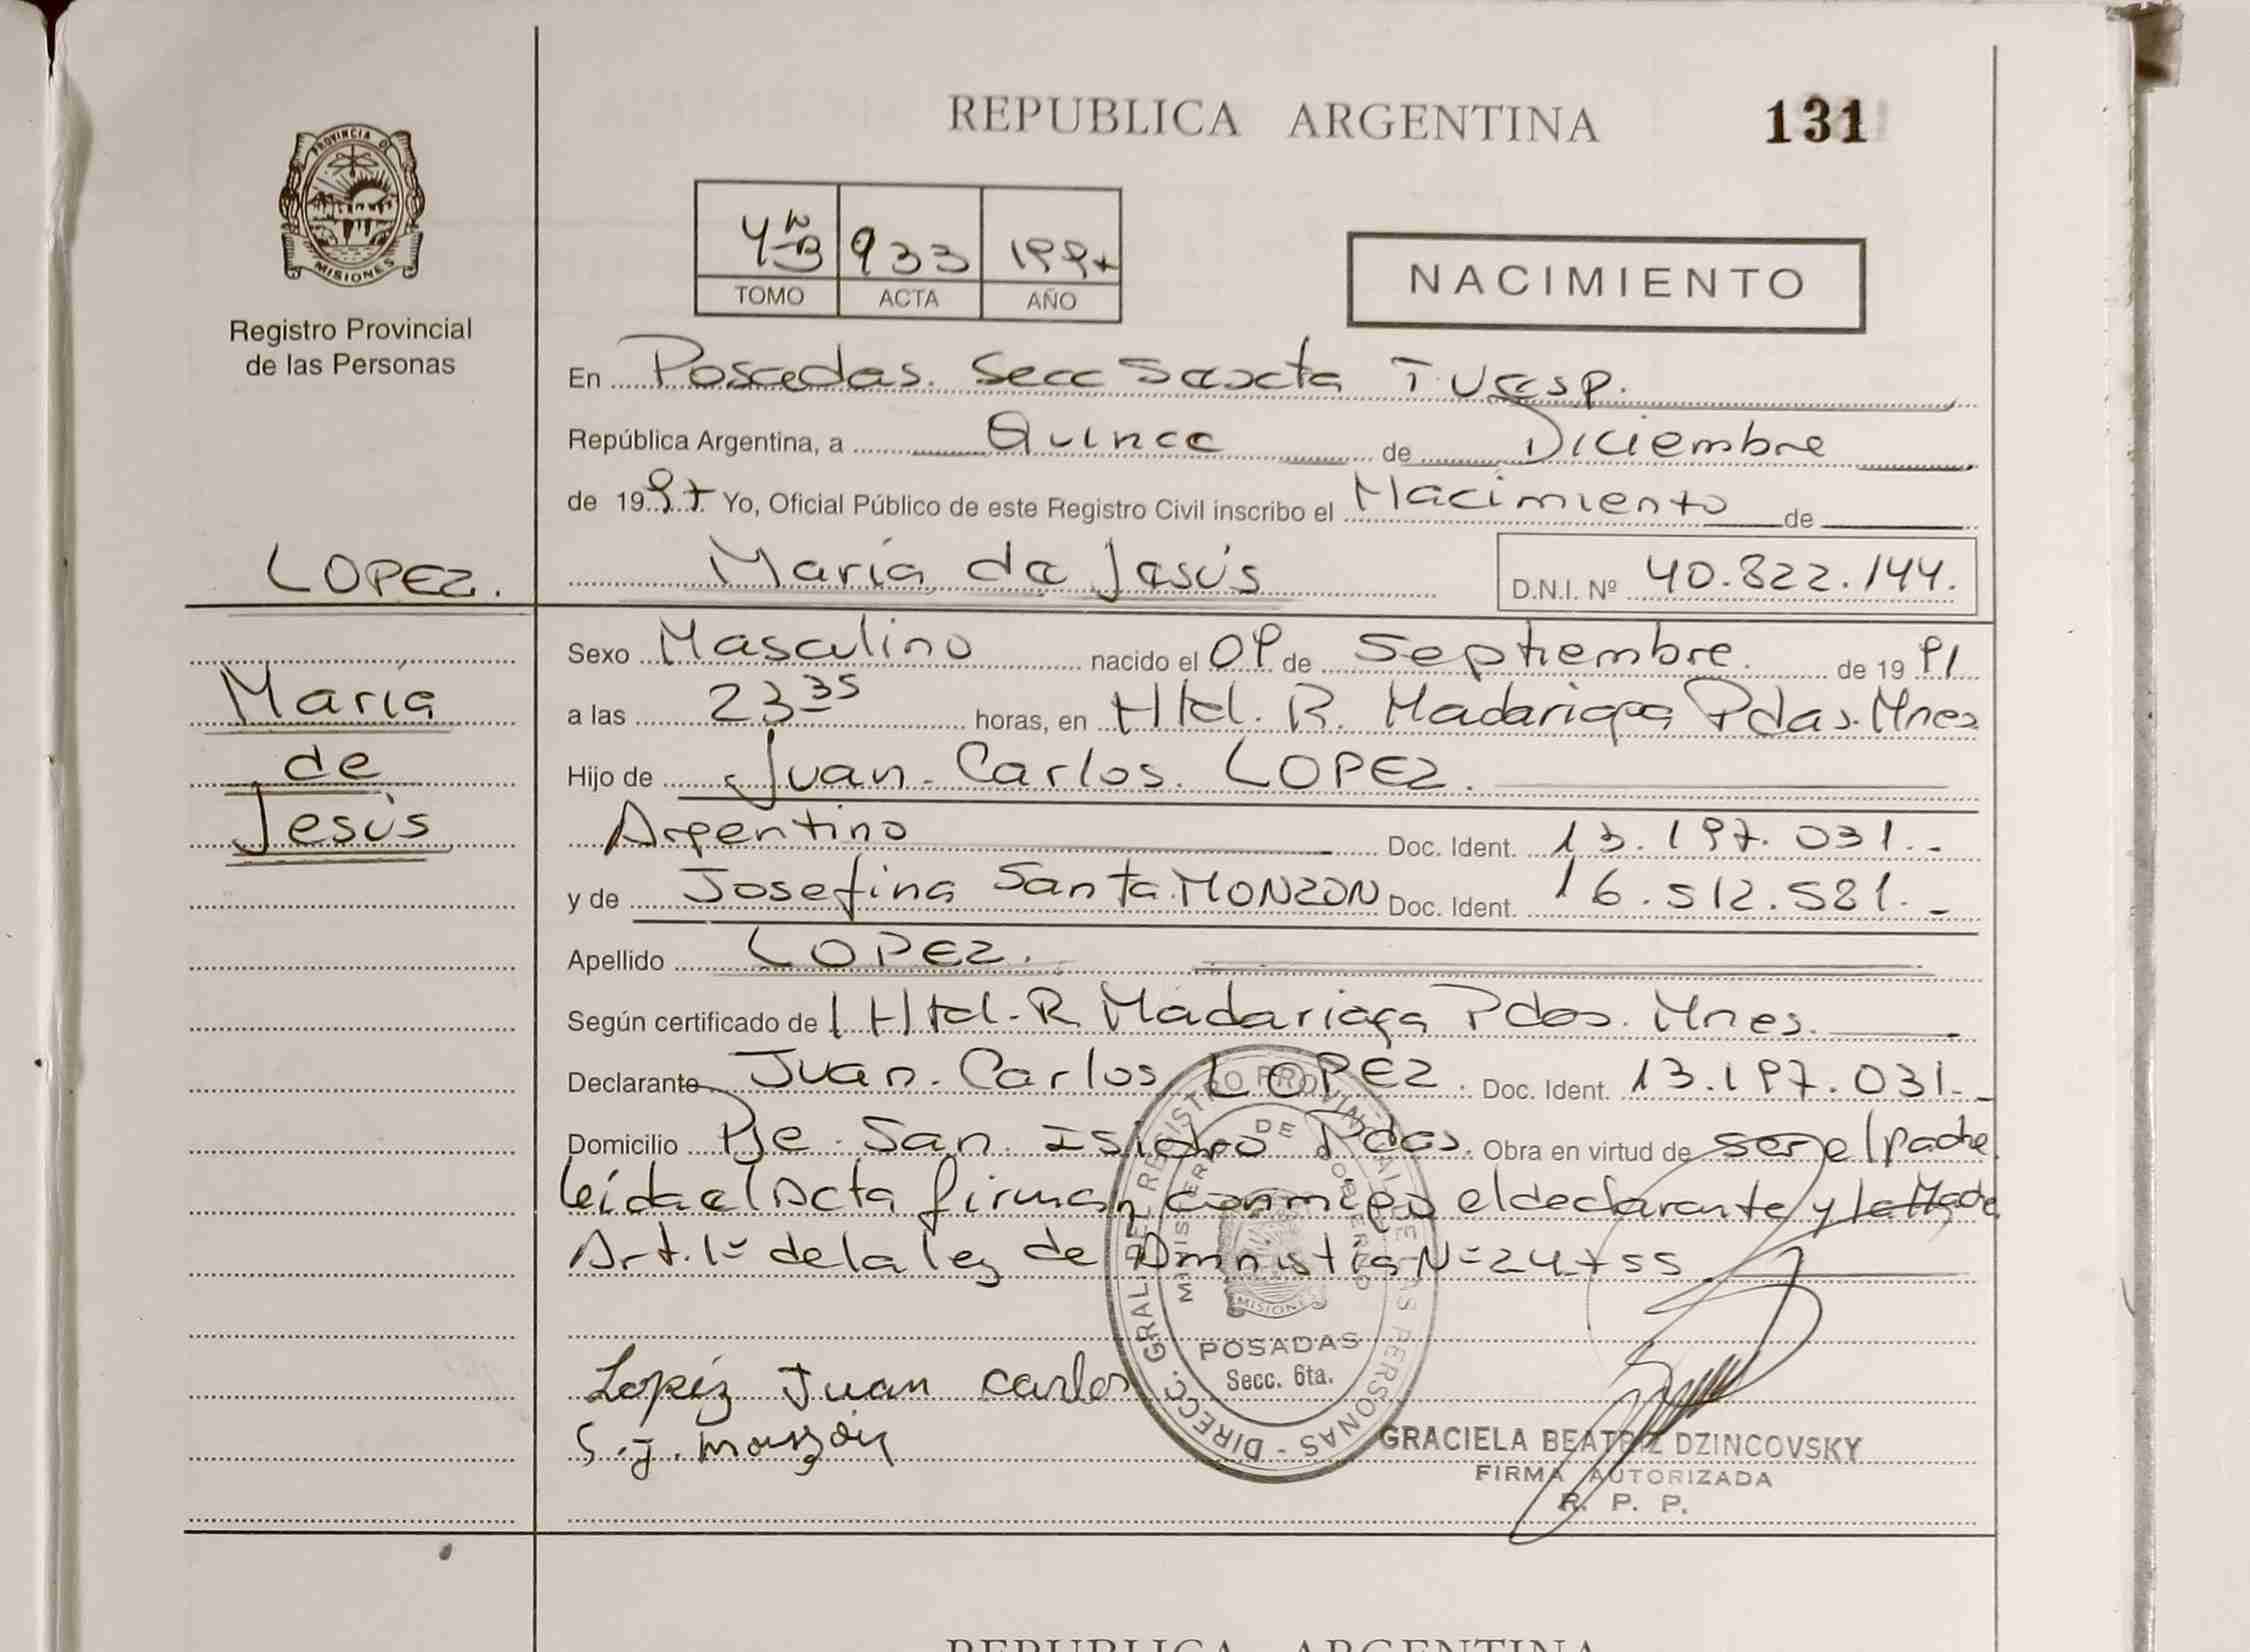 REPUBLICA ARGENTINA 131
PROVINCIA D
MISIONES
Registro Provincial
de las Personas
933 1997
TOMO ACTA AÑO
NACIMIENTO
En Posadas. Secc Sexta T. Vesp.
República Argentina, a Quince de Diciembre
de 1997 Yo, Oficial Público de este Registro Civil inscribo el Nacimiento de
LOPEZ. María de Jesús D.N.I. Nº 40.822.144.
Sexo Masculino nacido el 09 de Septiembre. de 1991
María
a las 23 35 horas, en Htal. R. Madariaga Pdas. Mnes
de
Hijo de Juan. Carlos. LOPEZ.
Jesús
Argentino Doc. Ident. 13.197.031.-
y de Josefina Santa MONZON Doc. Ident. 16.512.581.-
Apellido LOPEZ.
Según certificado del Htal. R Madariaga Pdas. Mnes.
Declarante Juan. Carlos LOPEZ. Doc. Ident. 13.197.031.-
Domicilio Pje. San. Isidro Pdas. Obra en virtud de ser el padre
leida el Acta firman conmigo el declarante y la Madre
Art. 1º de la ley de Amnistía Nº 24755
Lopéz Juan Carlos
S. J. Monzón
DIRECC. GRAL. DEL REGISTRO PROVINCIAL DE LAS PERSONAS
MINISTERIO DE GOBIERNO
MISIONES
POSADAS
Secc. 6ta.
GRACIELA BEATRIZ DZINCOVSKY
FIRMA AUTORIZADA
R. P. P.
REPUBLICA ARGENTINA